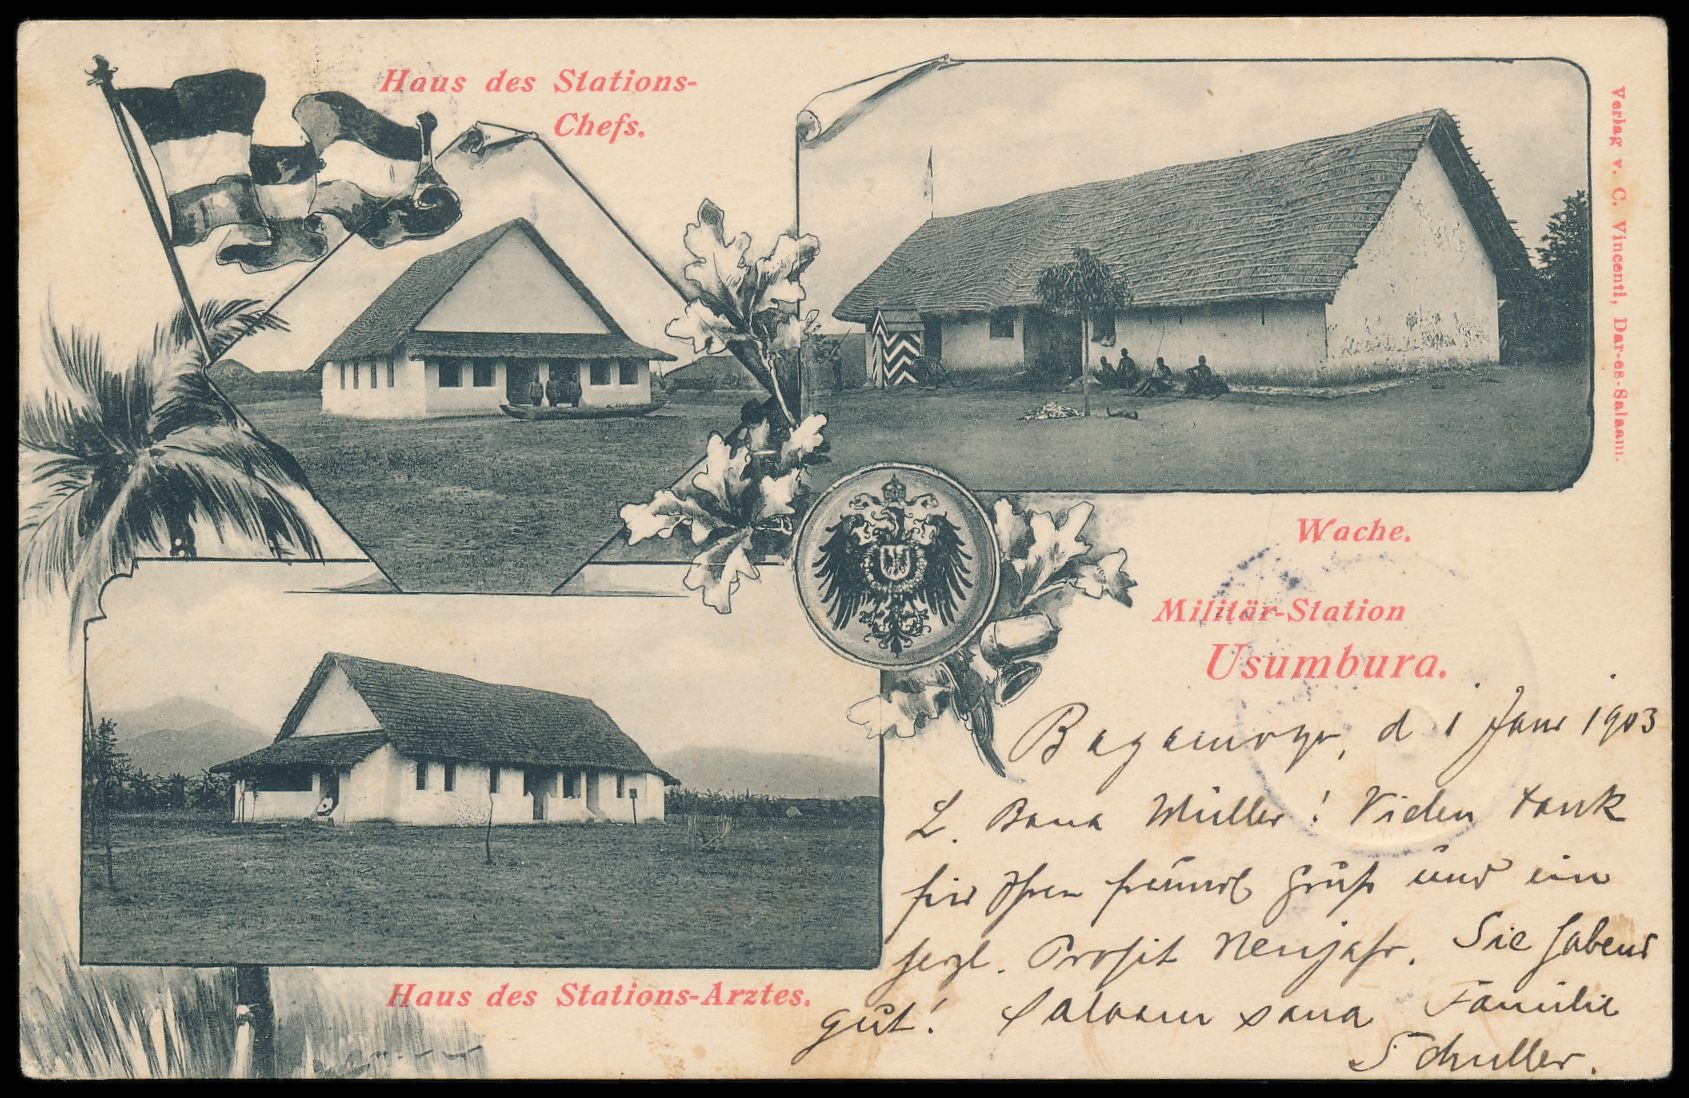 Haus des Stations-
Chefs.
Verlag v. C. Vincenti, Dar-es-Salaam.
Wache.
Militär-Station
Usumbura.
Haus des Stations-Arztes.
Bagamoyo, d 1 Janr 1903
L. Bana Müller! Vielen Dank
für Ihren freundl Gruß und ein
herzl. Prosit Neujahr. Sie habens
gut! Salaam sana Familie
Schuller.